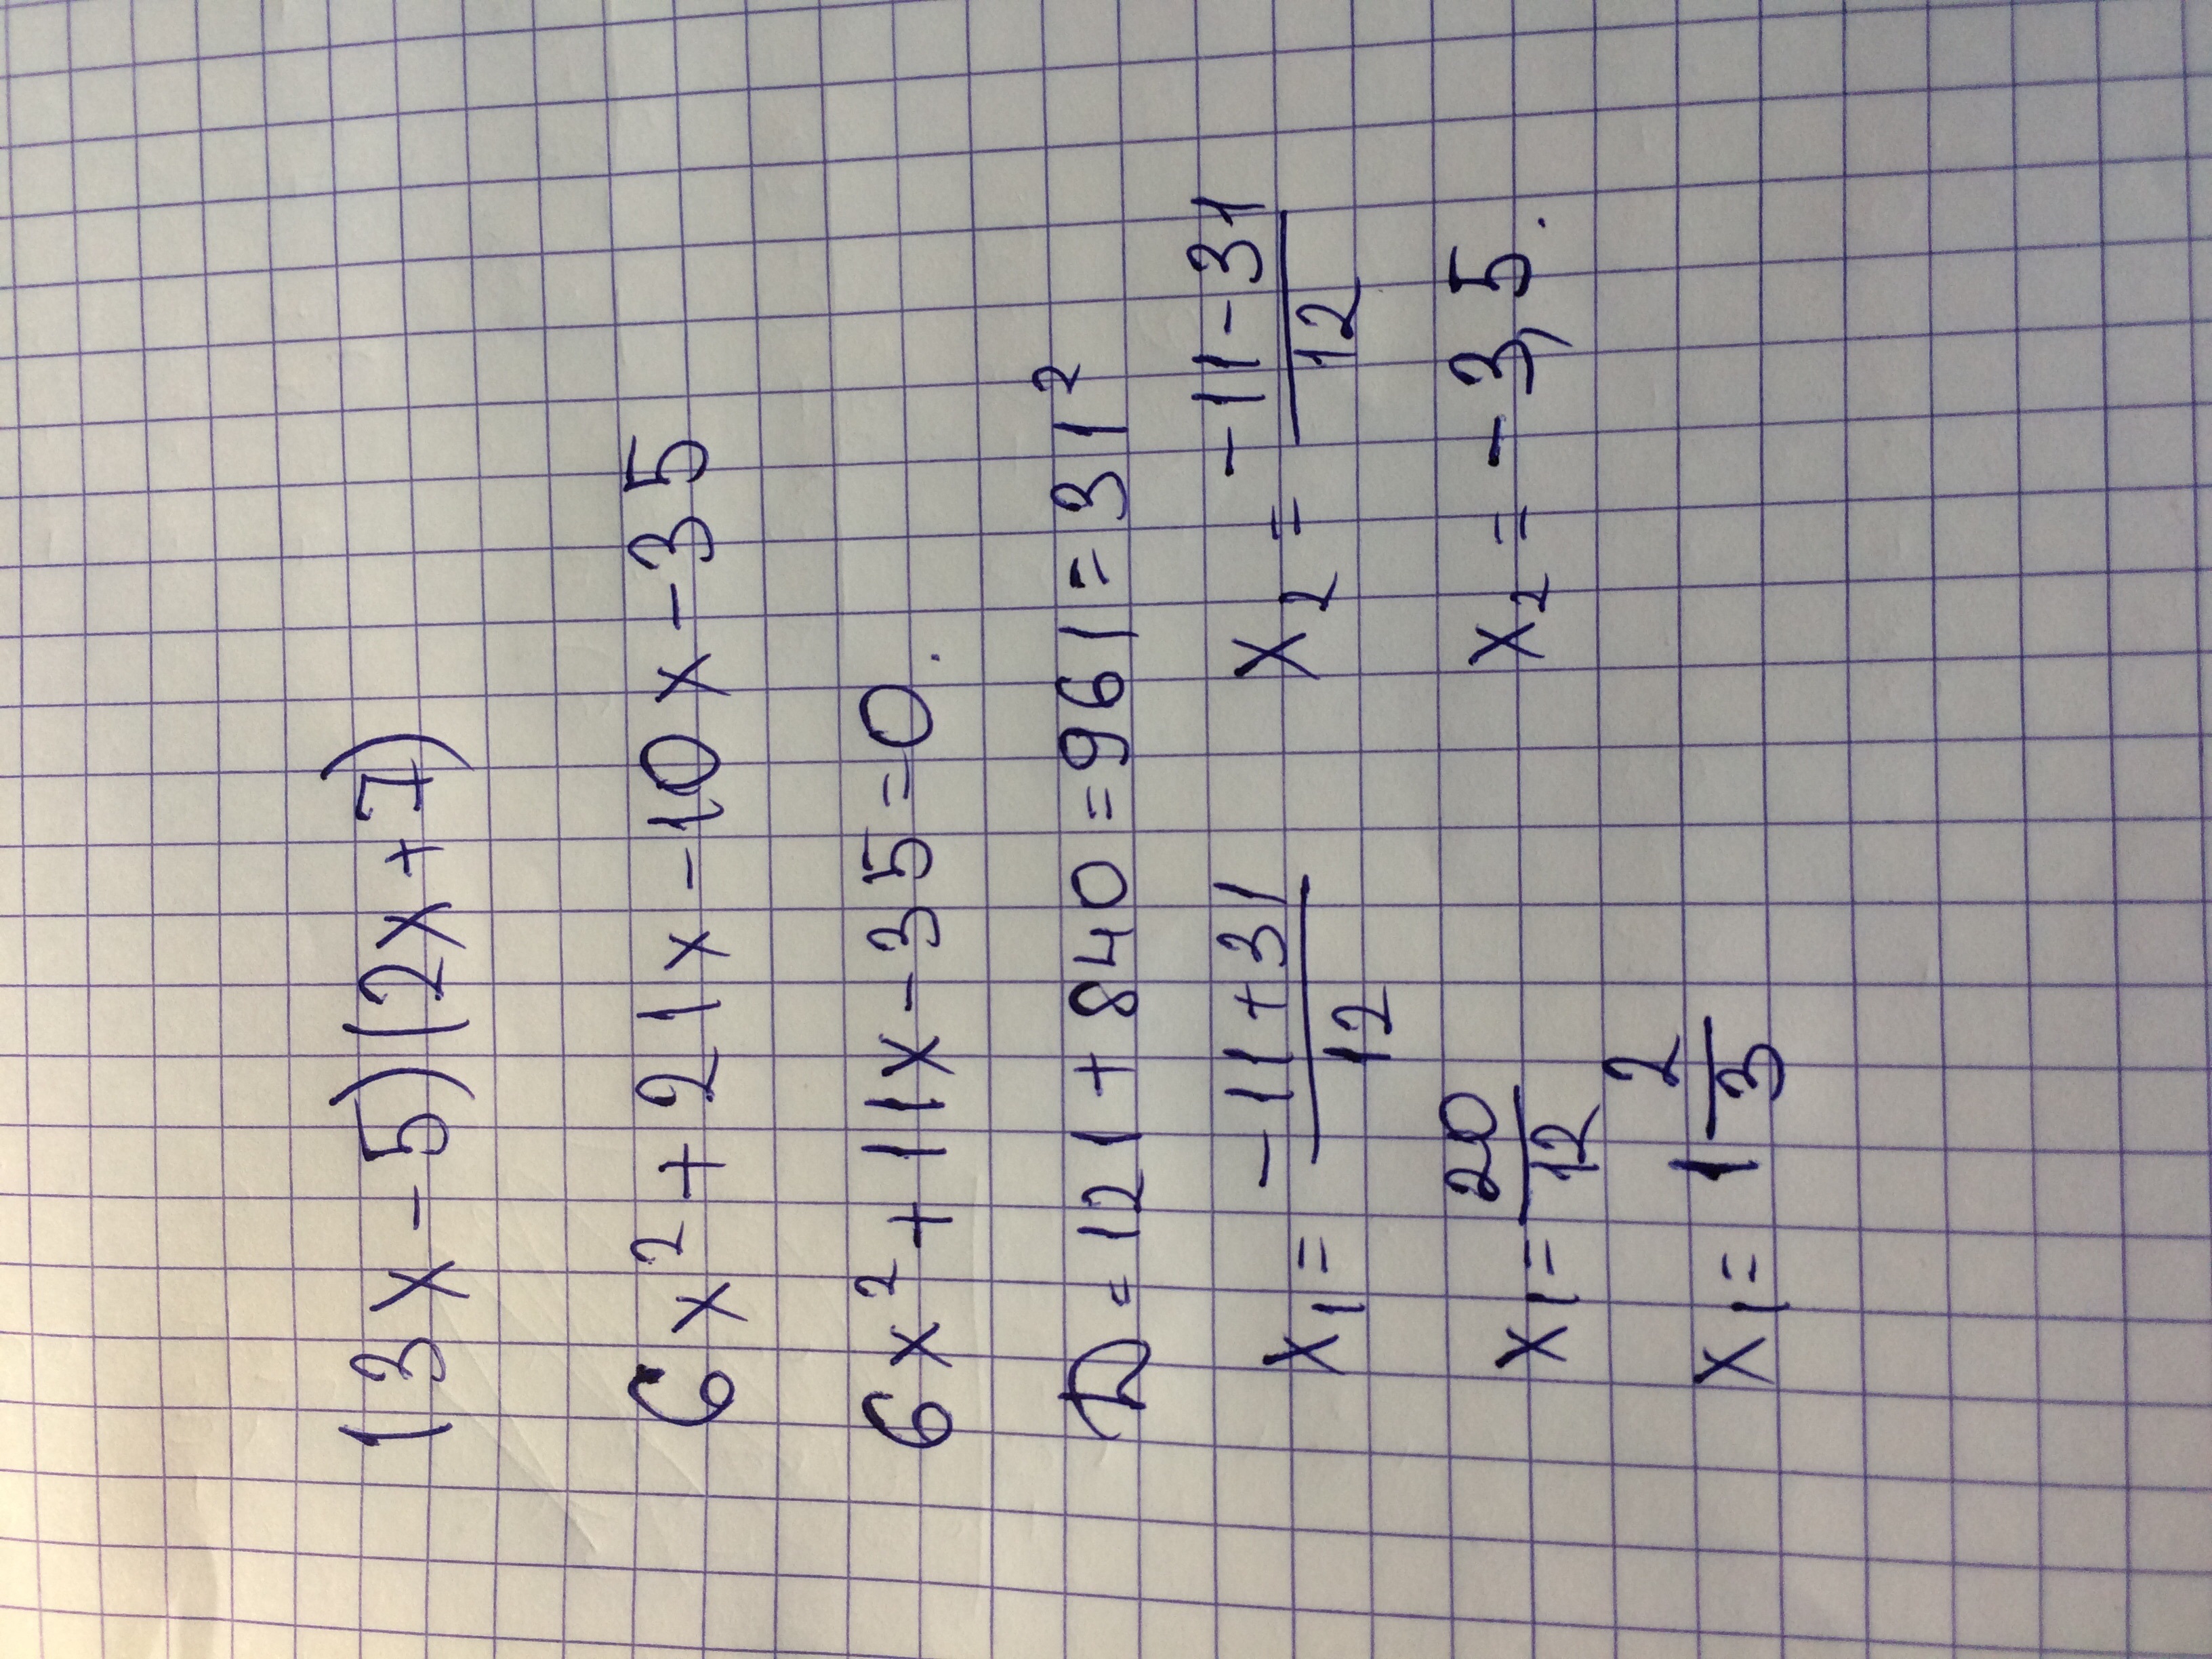 (3x-5)(2x+7)
6x²+21x-10x-35
6x²+11x-35=0.
D=121+840=961=31²
x₁= -11+31/12 x₂= -11-31/12
x₁= 20/12 x₂= -3,5.
x₁= 1 2/3